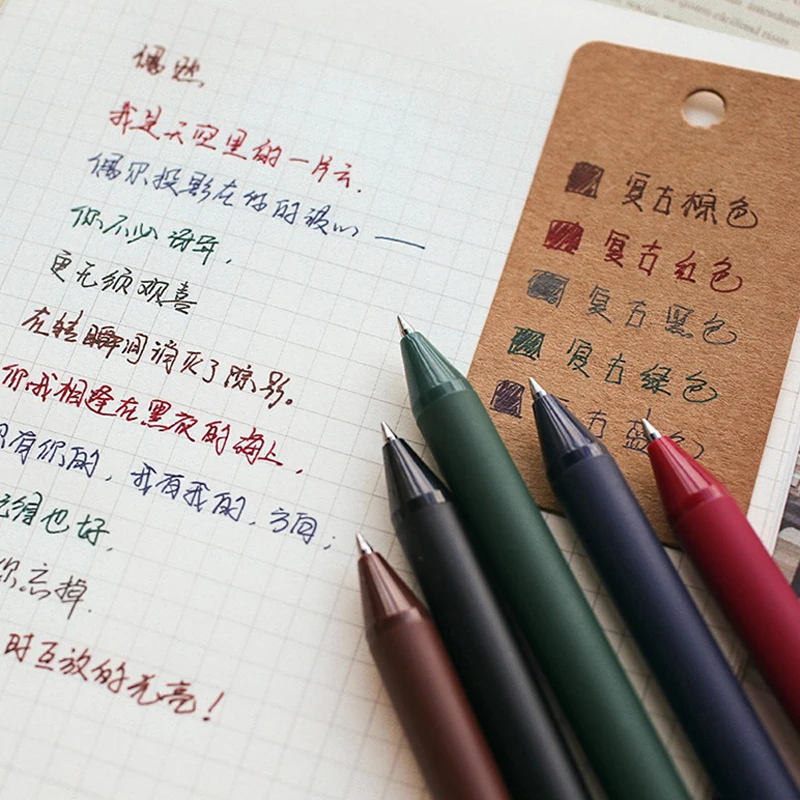 偶然
我是天空里的一片云.
偶尔投影在你的波心 ——
你不必讶异,
更无须欢喜
在转瞬间消灭了踪影。
你我相逢在黑夜的海上,
有你的, 我有我的, 方向;
也好,
你忘掉.
时互放的光亮!
复古棕色
复古红色
复古黑色
复古绿色
复古蓝色